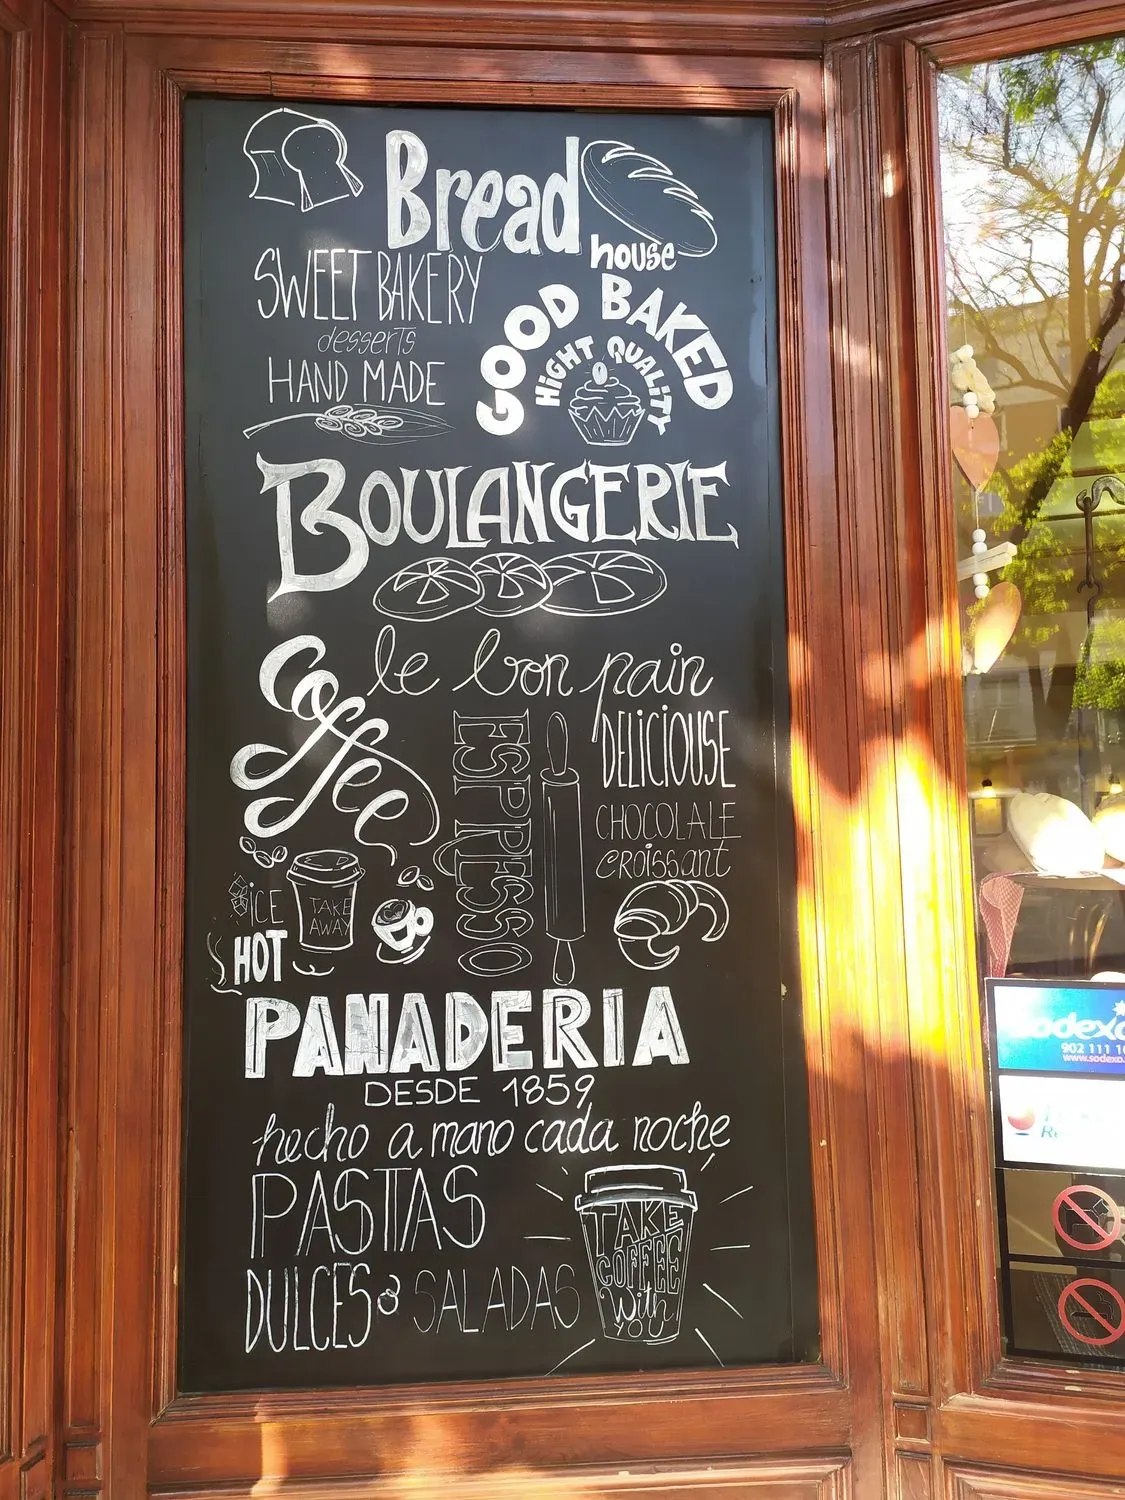 Bread
house
SWEET BAKERY
desserts
HAND MADE
GOOD BAKED
HIGHT QUALITY
BOULANGERIE
le bon pain
Coffee
ESPRESSO
DELICIOUSE
CHOCOLALE
croissant
ICE
HOT
TAKE
AWAY
PANADERIA
DESDE 1859
hecho a mano cada noche
PASTAS
DULCES SALADAS
TAKE
COFFEE
With
YOU
sodexo
902 111 1
www.sodexo.